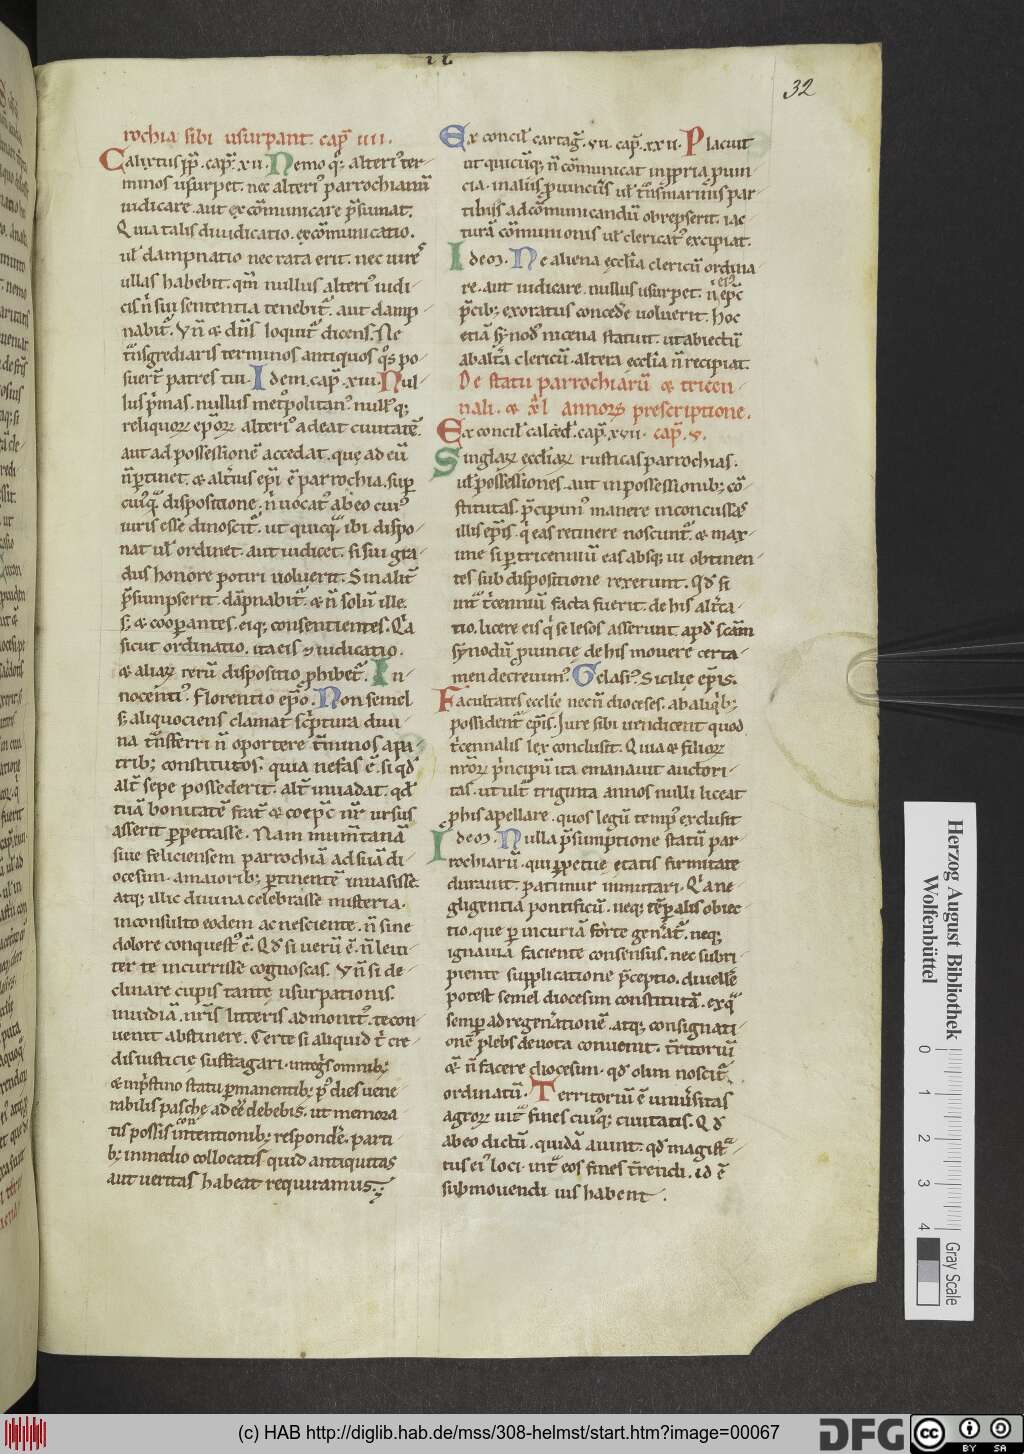 32
rochia sibi usurpant. cap̃ iiii.
Calixtus pp̃. cap̃. xii. Nemo q̧; alteri᾽ ter-
minos usurpet. nec alteri᾽ parrochianũ
iudicare. aut excõmunicare p̃sumat.
Quia talis diiudicatio. excõmunicatio.
ul̃ dampnatio nec rata erit. nec uires
ullas habebit. qm̃ nullus alteri᾽ iudi-
cis ñ sui sententia tenebit̃. aut damp-
nabit̃. Vñ & dñs loquit̃ dicens. Ne
t̃nsgrediaris terminos antiquos q̃s po-
suer̃t patres tui. Idem. cap̃. xiii. Nul-
lus p̃mas. nullus met̃politan᾽. null᾽q;
reliquorꝝ ep̃orꝝ alteri᾽ adeat ciuitatẽ.
aut ad possessionẽ accedat. que ad eũ
ñ ptinet. & alt̃ius ep̃i ẽ parrochia. sup
cui᾽q̃ dispositione. ñ uocat᾽ ab eo cui᾽
iuris esse dinoscit̃. ut quicq̃ ibi dispo-
nat ul̃ ordinet. aut iudicet. si sui gra-
dus honore potiri uoluerit. Sin alit̃
p̃sumpserit. dãpnabit̃. & ñ solũ ille.
s; & cooperantes. eiq; consentientes. Q̃a
sicut ordinatio. ita eis & iudicatio.
& aliarꝝ rerũ dispositio phibet̃. In-
nocenti᾽ Florentio ep̃o. Non semel
s; aliquociens clamat sc̃ptura diui-
na t̃nsferri ñ oportere t̃minos a pa-
trib; constitutos. quia nefas ẽ. si qd̃
alt̃ sepe possederit. alt̃ inuadat. qd̃
tuã bonitatẽ frat̃ & coep̃c nr̃ ursus
asserit ppetrasse. Nam numentanã
siue feliciensem parrochiã ad suã di-
ocesim. a maiorib; ptinentẽ inuasisse.
atq; illic diuina celebrasse misteria.
inconsulto eodem ac nesciente. ñ sine
dolore conquest᾽ ẽ. Qd̃ si uerũ ẽ. ñ leui-
ter te incurrisse cognoscas. Vñ si de-
clinare cupis tante usurpationis.
inuidiã. nr̃is litteris admonit᾽. te con-
uenit abstinere. Certe si aliquid t̃ cre-
dis iusticie suffragari. integ̃s omnib;
& in p̃stino statu pmanentib; p᾽ dies uene-
rabilis pasche ad eẽ debebis. ut memora-
tis possis intentionib; respondẽ. parti-
b; in medio collocatis quid antiquitas
aut ueritas habeat requiramus.
Ex concil̃ cartag̃. vii. cap̃. xx ii. Placuit
ut quicũq; ñ cõmunicat in ppria puin-
cia. in aliis puinciis ul̃ t̃nsmarinis par-
tibus ad cõmunicandũ obrepserit. iac-
turã cõmunionis ul̃ clericat᾽ excipiat.
Idem. Ne aliena ecclĩa clericũ ordina-
re. aut iudicare. nullus usurpet. ñ ep̃c
p̃cib; exoratus concedẽ uoluerit. Hoc
etiã synod᾽ nicena statuit. ut abiectũ
ab alt̃a clericũ. altera ecclĩa ñ recipiat.
De statu parrochiarũ & tricen-
nali. & xl annorꝝ prescriptione.
Ex concil̃ calced̃. cap̃. xvii. cap̃. v.
Singlarꝝ eccliarꝝ rusticas parrochias.
ul̃ possessiones. aut in possessionib; cõ-
stitutas. p̃cipim᾽ manere inconcussas
illis ep̃is. q̃ eas retinere noscunt̃. & max-
ime si p tricenniũ eas absq; ui obtinen-
tes sub dispositione rexerunt. Qd̃ si
int̃ t̃cenniũ facta fuerit. de his alt̃ca-
tio. licere eis q̃ se lesos asserunt. apd̃ sc̃am
synodũ puincie de his mouere certa-
men decreuim᾽. Gelasi᾽. Sicilie ep̃is.
Facultates ecclie necñ dioceses. ab aliq̃b;
possident̃ ep̃is. Iure sibi uendicent quod
t̃cennalis lex conclusit. Quia & filiorꝝ
nr̃orꝝ p̃ncipũ ita emanauit auctori-
tas. ut ult̃ triginta annos nulli liceat
p his apellare. quos legũ temp᾽ exclusit
Idem. Nulla p̃sumptione statũ par-
rochiarũ. qui ppetue etatis firmitate
durauit. patimur inmutari. Q̃a ne-
gligentia pontificũ. neq; tẽpalis obiec-
tio. que p incuriã forte gen̾at̃. neq;
ignauia faciente consensus. nec subri-
piente supplicatione p̃ceptio. diuellẽ
potest semel diocesim constitutã. ex q̃
semp ad regenerationẽ. atq; consignati-
onẽ plebs deuota conuenit. t̃ritoriũ
& ñ facere diocesim. qd̃ olim noscit̃
ordinatũ. Territoriũ ẽ uniũsitas
agrorꝝ int̃ fines cui᾽q; ciuitatis. Qd̃
ab eo dictũ. quidã aiunt. qd̃ magist̃-
tus ei᾽ loci. int̃ eos fines t̃rendi. id ẽ
submouendi ius habent.
Herzog August Bibliothek
Wolfenbüttel
0 1 2 3 4
Gray Scale
(c) HAB http://diglib.hab.de/mss/308-helmst/start.htm?image=00067
DFG
cc BY SA